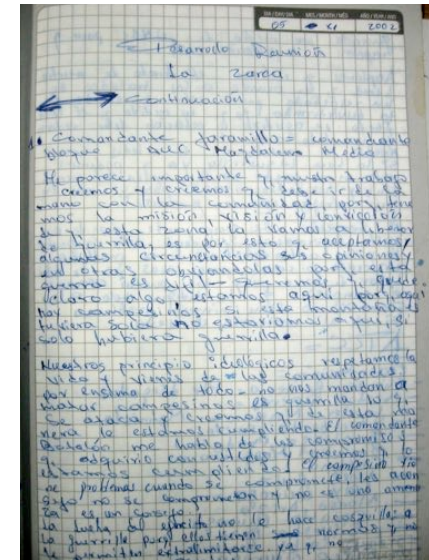 DIA/DAY/DIA MES/MONTH/MÊS AÑO/YEAR/ANO
05 XI 2002
Desarrollo Reunión
La zarca
Continuación
1. Comandante Jaramillo = comandante
bloque AUC Magdalena Medio
Me parece importante y nuestro trabajo
creemos y creemos q debe ir de la
mano con la comunidad por
mos la misión, visión y convicción
de q esta zona la vamos a liberar
de guerrilla, es por esto q aceptamos
algunas circunstancias sus opiniones y
en otras obviandolas por esta
guerra es queremos q quede
claro algo estamos aqui por q aqui
hay campesinos si esta montaña es
tuviera sola no estariamos aqui, si
solo hubiera guerrilla.
Nuestros principio ideologicos respetamos la
vida y vienes de las comunidades
por ensima de todo no nos mandan a
matar campesinos es guerrilla lo q
se ataca y creemos q de esta ma
nera lo estamos cumpliendo. El comandante
me habla de los compromisos
q adquirio con ustedes y creemos q lo
estamos cumpliendo. El campesino
se problemas cuando se compromete, les
sejo no se comprometan y no es una amena
za es un consejo.
La lucha del ejercito no le hace cosquilla a
la guerrilla por ellos tienen normas y no
le permiten extralimitarse